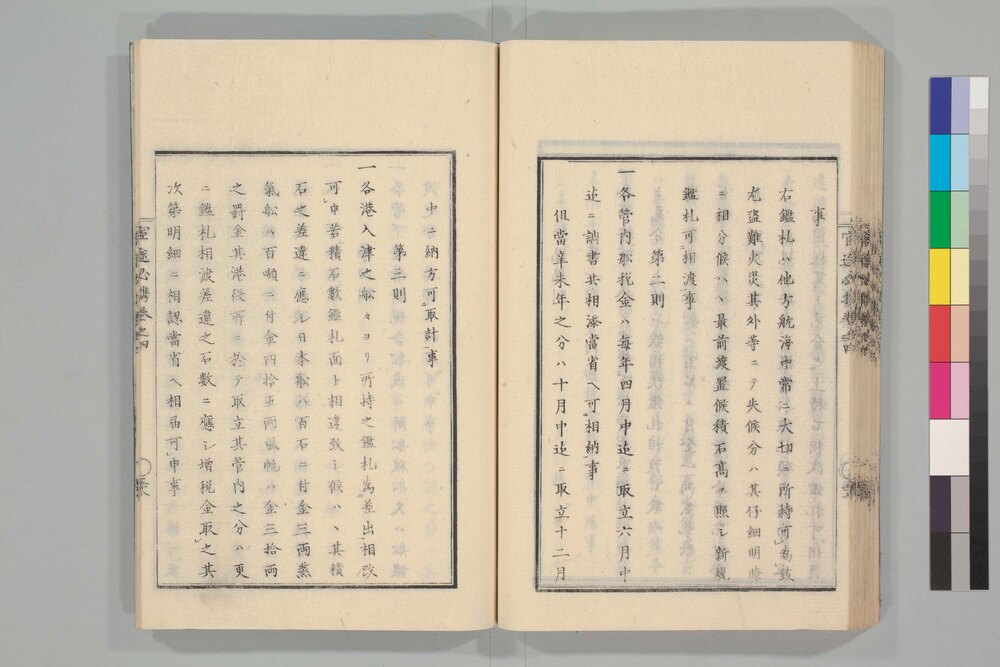 事
右鑑札ハ他方航海中常ニ大切ニ所持可為致
尤盗難火災其外等ニテ失候分ハ其仔細明瞭
ニ相分候ハヽ最前渡置候積石高ヲ照シ新規
鑑札可相渡事
第二則
一各管内船税金ハ毎年四月中迄ニ取立六月中
迄ニ訥書共相添當省ヘ可相納事
但當辛未年之分ハ十月中迄ニ取立十二月
中ニ納方可取計事
第三則
一各港入津之船々ヨリ所持之鑑札為差出相改
可申若積石數鑑札面ト相違致シ候ハヽ其積
石之差違ニ應シ日本船ハ百石ニ付金三両蒸
氣船ハ百噸ニ付金四拾五両風帆ハ金三拾両
之罸金其港役所ニ於テ取立其管内之分ハ更
ニ鑑札相渡差違之石數ニ應シ増税金取之其
次第明細ニ相認當省ヘ相届可申事
官途必携巻之四